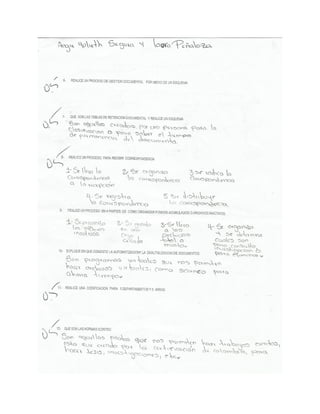 Angie Yolieth Segura Y
A. REALICE UN PROCESO DE GESTION DOCUMENTAL POR MEDIO DE UN ESQUEMA
QUE SON LAS TABLAS DE RETENCION DOCUMENTAL Y REALICE UN ESQUEMA
Son aquellas creadas por una persona para la
Clasificación o para saber el tiempo
de permanencia del documento.
REALICE UN PROCESO, PARA RECIBIR CORRESPONDENCIA
1. Se lleva la
correspondencia
a la recepción
2. Se organiza
la correspondencia
3. se radica la
correspondencia
4. Se registra
la correspondencia
5 Se distribuye
la correspondencia
REALICE UN PROCESO EN 4 PARTES DE COMO ORGANIZAR FONDOS ACUMULADOS O ARCHIVOS INACTIVOS
2. Se organiza
en una
caja
3. Se lleva
a los
archivos
4. Se organiza
y se determina
cuales son
para consulta
investigación o
para eliminar
EXPLIQUE EN QUE CONSISTE LA AUTOMATIZACION Y LA DIGITALIZACION DE DOCUMENTOS
Son programas virtuales que nos permiten
hacer archivos virtuales como scaneo para
ahorrar tiempo
REALICE UNA CODIFICACION PARA
QUE SON LAS NORMAS ICONTEC
Son aquellas pautas que nos permiten hacer trabajos escritos,
para
hacer tesis, investigaciones, etc.